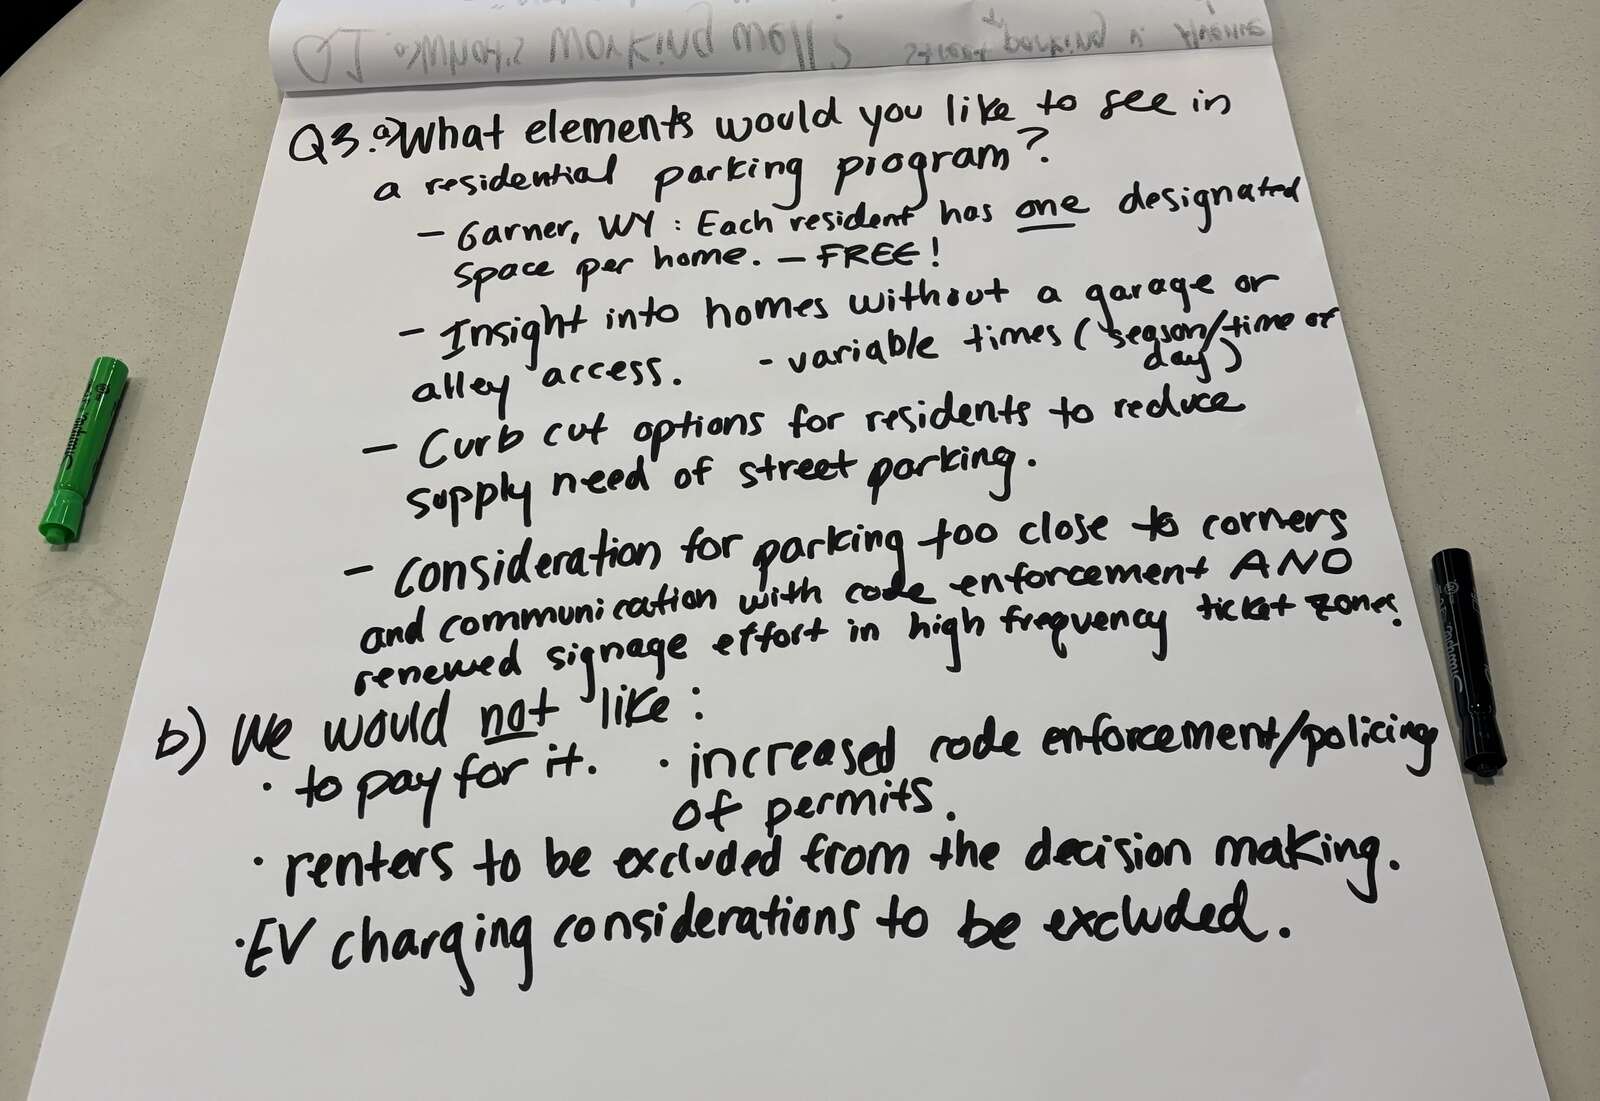 Q3. a) What elements would you like to see in
a residential parking program?
– Garner, WY : Each resident has one designated
space per home. – FREE!
– Insight into homes without a garage or
alley access. - variable times (season/time of
day)
– Curb cut options for residents to reduce
supply need of street parking.
– Consideration for parking too close to corners
and communication with code enforcement AND
renewed signage effort in high frequency ticket zones.
b) We would not like:
· to pay for it. · increased code enforcement/policing
of permits.
· renters to be excluded from the decision making.
· EV charging considerations to be excluded.